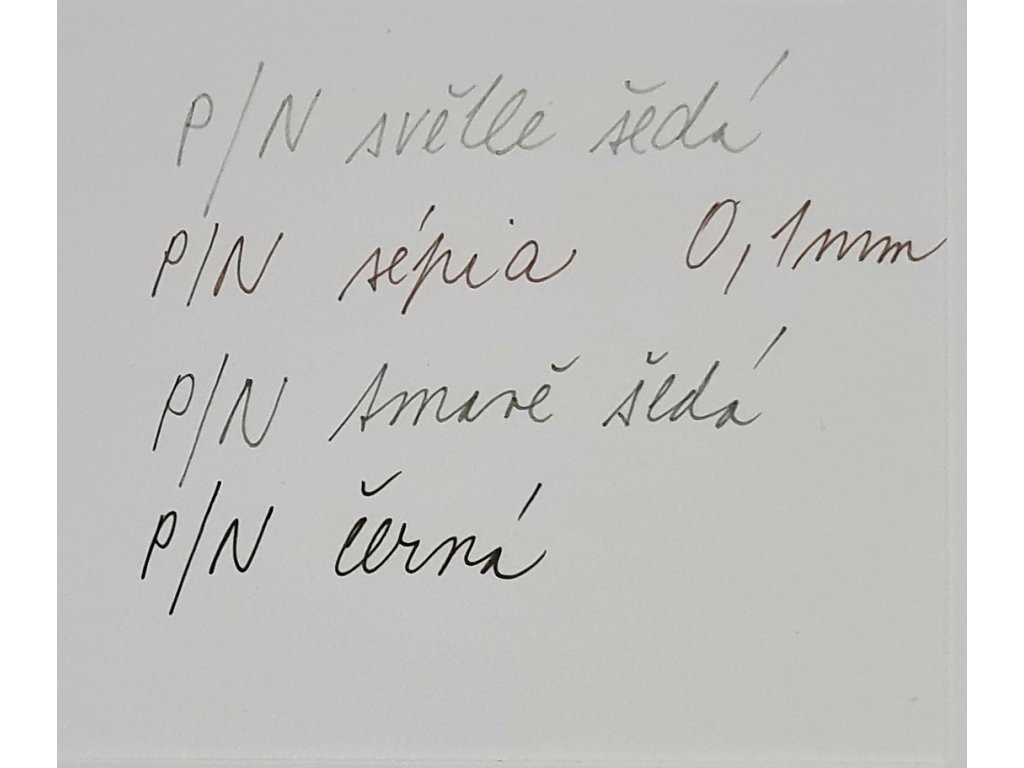 P/N světle šedá
P/N sépia 0,1mm
P/N tmavě šedá
P/N černá